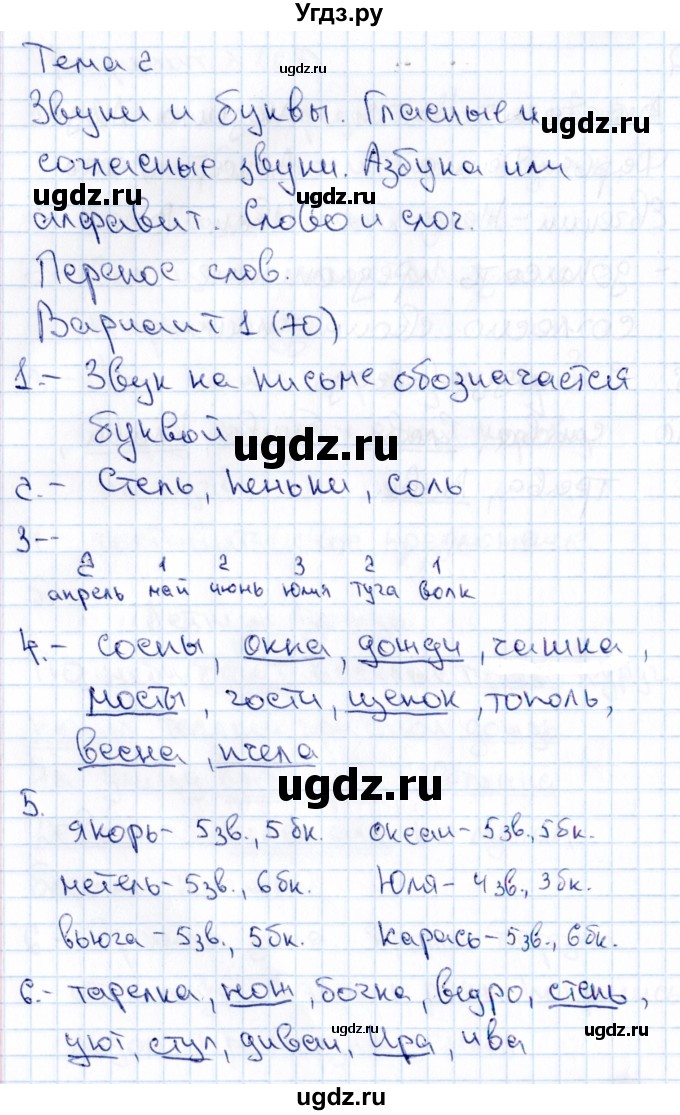 Угдз.ру
Тема 2
Звуки и буквы. Гласные и
согласные звуки. Азбука или
алфавит. Слово и слог.
Перенос слов.
Вариант 1 (70)
1.- Звук на письме обозначается
буквой
2.- Степь, пеньки, соль
3--
2 1 2 3 2 1
апрель май июнь юлия туча волк
4.- Сосны, окна, дожди, чашка,
мосты, гости, щенок, тополь,
весна, пчела
5.
якорь- 5зв., 5бк. океан- 5зв., 5бк.
метель- 5зв., 6бк. Юля- 4зв., 3бк.
вьюга- 5зв., 5бк. карась- 5зв., 6бк.
6.- тарелка, нож, бочка, ведро, степь,
уют, стул, диван, Ира, ива
ugdz.ru
ugdz.ru
ugdz.ru
ugdz.ru
ugdz.ru
ugdz.ru
ugdz.ru
ugdz.ru
ugdz.ru